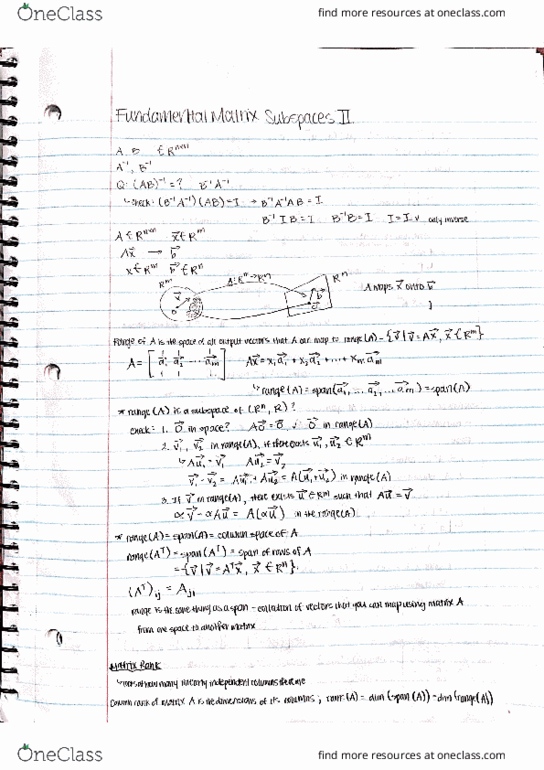 OneClass
find more resources at oneclass.com
Fundamental Matrix Subspaces II
A, B ∈ R^nxn
A⁻¹, B⁻¹
Q: (AB)⁻¹ = ? B⁻¹A⁻¹
↳ check: (B⁻¹A⁻¹)(AB) = I → B⁻¹A⁻¹AB = I
B⁻¹ I B = I B⁻¹B = I I = I ✓ only inverse
A ∈ R^nxm x⃗ ∈ R^m
Ax⃗ → b⃗
x ∈ R^m b⃗ ∈ R^n
R^m
R^n
A maps x⃗ onto b⃗
Range of A is the space of all output vectors that A can map to range(A) = {v⃗ | v⃗ = Ax⃗, x⃗ ∈ R^m}
A = [a⃗₁ a⃗₂ ... a⃗m] Ax⃗ = x₁a⃗₁ + x₂a⃗₂ + ... + xma⃗m
↳ range(A) = span(a⃗₁, ... a⃗₂, ... a⃗m) = span(A)
* range(A) is a subspace of (R^n, R)?
check: 1. 0⃗ in space? A0⃗ = 0⃗ ✓ 0⃗ in range(A)
2. v⃗₁, v⃗₂ in range(A), if there exists u⃗₁, u⃗₂ ∈ R^m
↳ Au⃗₁ = v⃗₁ Au⃗₂ = v⃗₂
Au⃗₁ + Au⃗₂ = A(u⃗₁ + u⃗₂) in range(A)
3. If v⃗ in range(A), there exists u⃗ ∈ R^m such that Au⃗ = v⃗
αv⃗ = αAu⃗ = A(αu⃗) in the range(A)
* range(A) = span(A) = column space of A
range(Aᵀ) = span(Aᵀ) = span of rows of A
= {v⃗ | v⃗ = Aᵀx⃗, x⃗ ∈ R^n}
(Aᵀ)ij = Aji
range is the same thing as a span - collection of vectors that you can map using matrix A
from one space to another matrix
Matrix Rank
↳ how many linearly independent columns
Column rank of matrix A is the dimensions of its columns; rank(A) = dim(span(A)) = dim(range(A))
OneClass
find more resources at oneclass.com